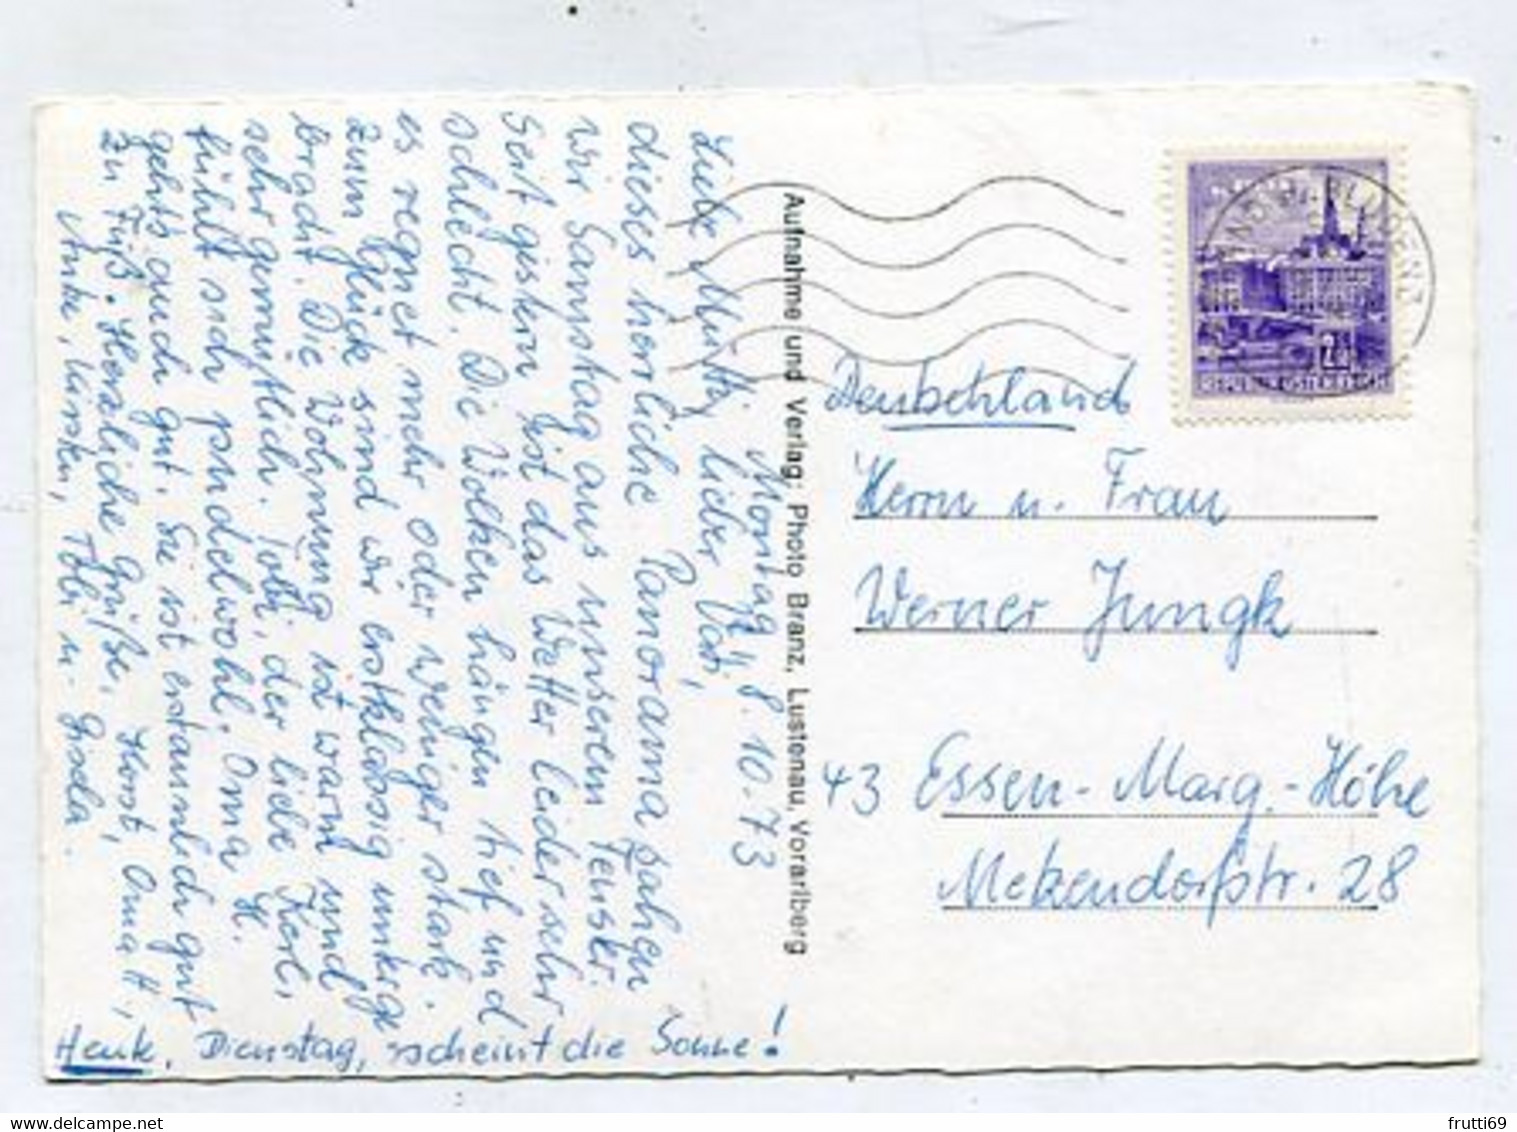 Montag, 8.10.73
Liebe Mutti, lieber Vati,
dieses herrliche Panorama sahen
wir Samstag aus unserem Fenster.
Seit gestern ist das Wetter leider sehr
schlecht. Die Wolken hängen tief und
es regnet mehr oder weniger stark.
Zum Glück sind wir erstklassig unterge
bracht. Die Wohnung ist warm und
sehr gemütlich. Tobi, der liebe Kerl,
fühlt sich pudelwohl. Oma H.
gehts auch gut. Sie ist erstaunlich gut
zu Fuß. Herzliche Grüße, Horst, Oma H,
Anke, Kirsten, Tobi u. Gisela.
Heute, Dienstag, scheint die Sonne!
Aufnahme und Verlag: Photo Branz, Lustenau, Vorarlberg
BLUDENZ
REPUBLIK ÖSTERREICH
Deutschland
Herrn u. Frau
Werner Jungk
43 Essen-Marg.-Höhe
Mekendorfstr. 28
frutti69